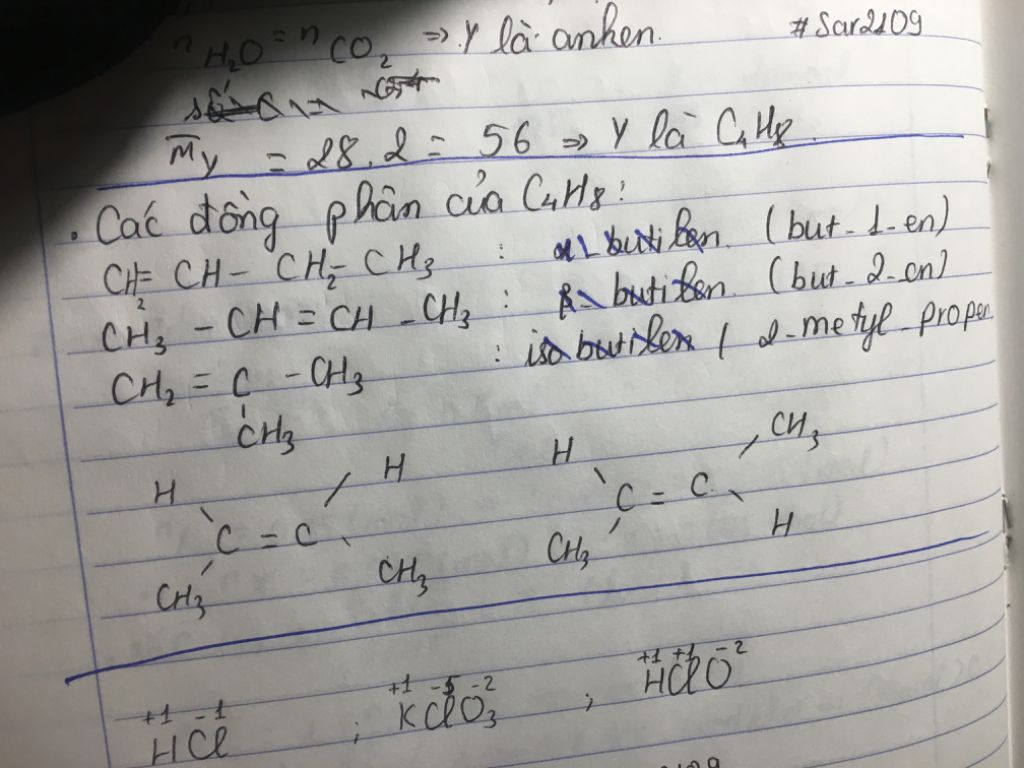 nH₂O = nCO₂ ⇒ Y là anken. #Sar2109
M̅y = 28.2 = 56 ⇒ Y là C₄H₈.
. Các đồng phân của C₄H₈:
CH₂ = CH - CH₂ - CH₃ : α - butilen. (but - 1 - en)
CH₃ - CH = CH - CH₃ : β - butilen. (but - 2 - en)
CH₂ = C - CH₃ : iso butilen / 2 - metyl - propen
CH₃
H H H CH₃
C = C C = C
CH₃ CH₃ CH₃ H
+1 -1 +1 -5 -2 +1 +1 -2
HCl ; KClO₃ ; HClO